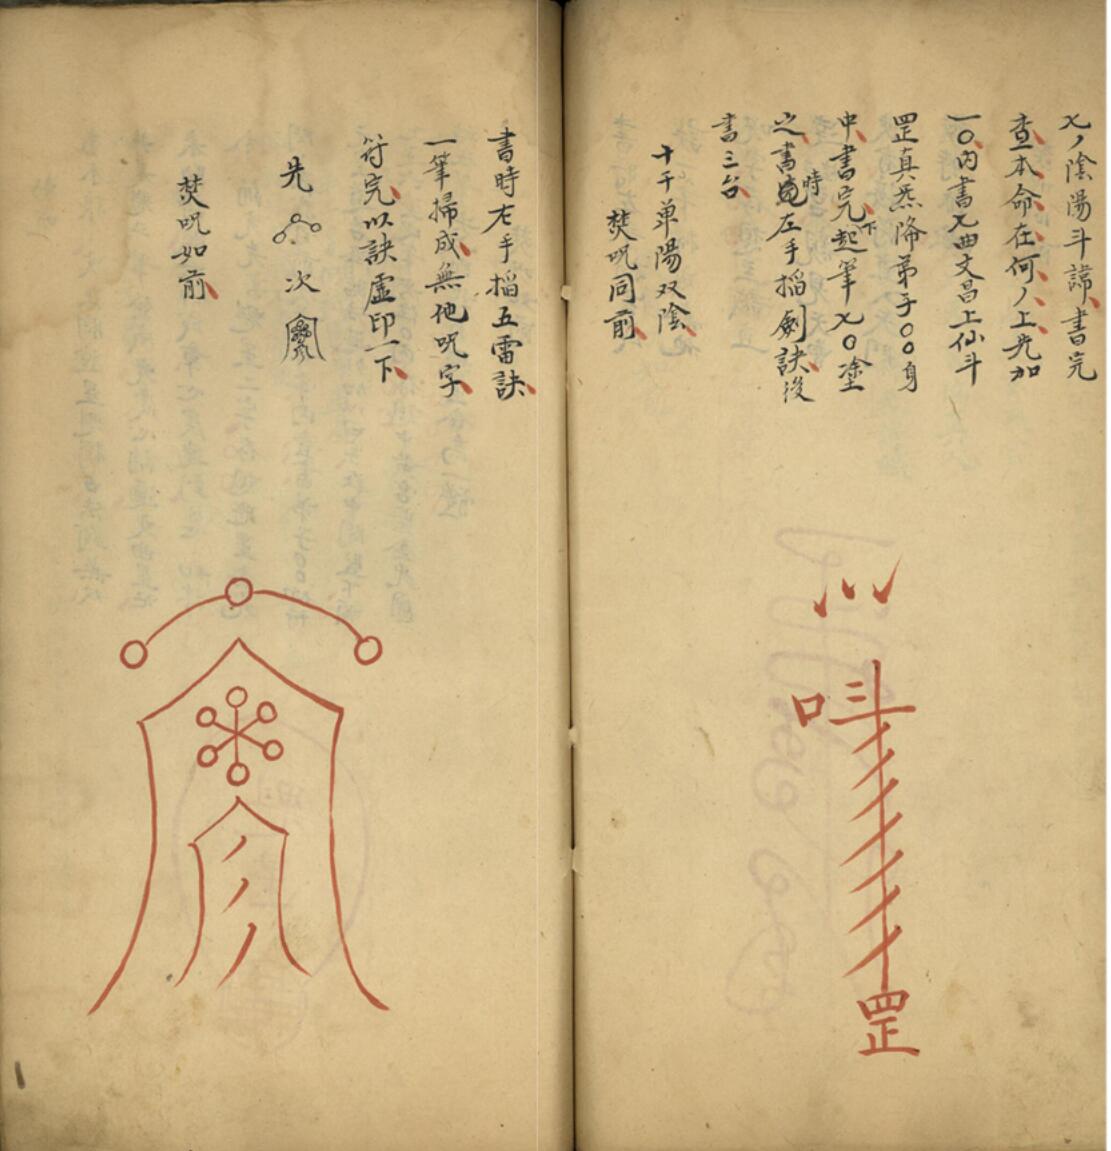 七ノ陰陽斗諱書完
查本命在何ノ上先加
一〇內書七曲文昌上仙斗
罡真炁降弟子〇〇身
中書完下起筆七〇塗
之書時左手搯劍訣後
書三台
十干單陽双陰
焚呪同前
口斗
罡
書時右手搯五雷訣
一筆掃成無他呪字
符完以訣虛印一下
先 次
焚呪如前